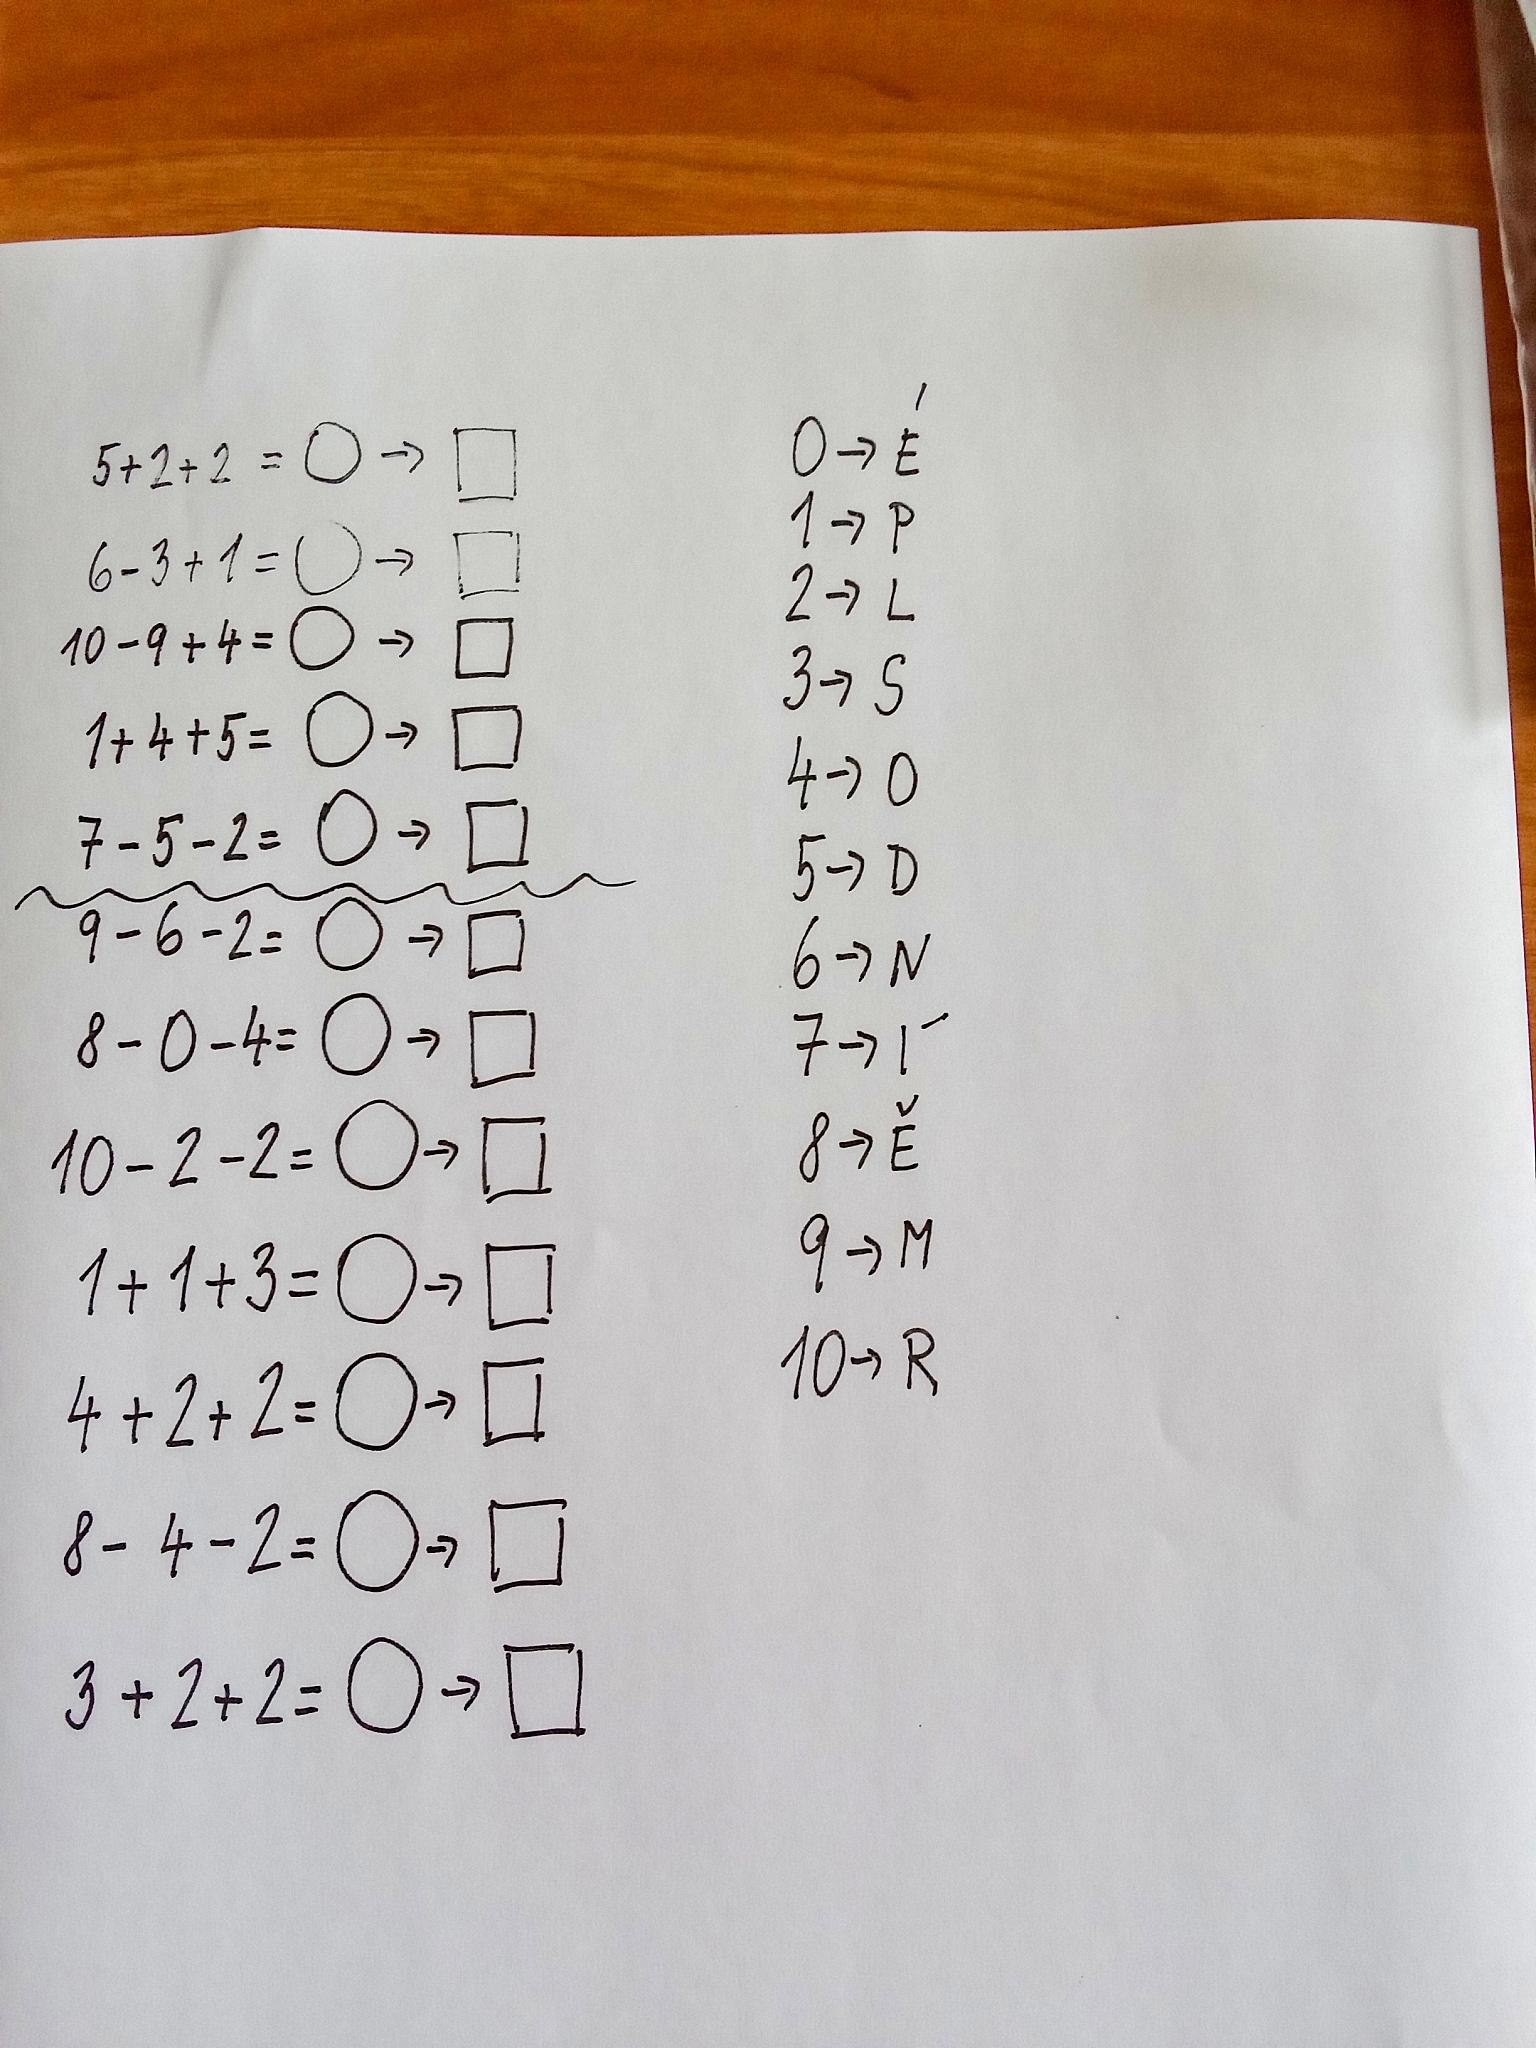 5+2+2 = ○ → □
6-3+1= ○ → □
10-9+4= ○ → □
1+4+5= ○ → □
7-5-2= ○ → □
9-6-2= ○ → □
8-0-4= ○ → □
10-2-2= ○ → □
1+1+3= ○ → □
4+2+2= ○ → □
8-4-2= ○ → □
3+2+2= ○ → □
0→É
1→P
2→L
3→S
4→O
5→D
6→N
7→Í
8→Ě
9→M
10→R